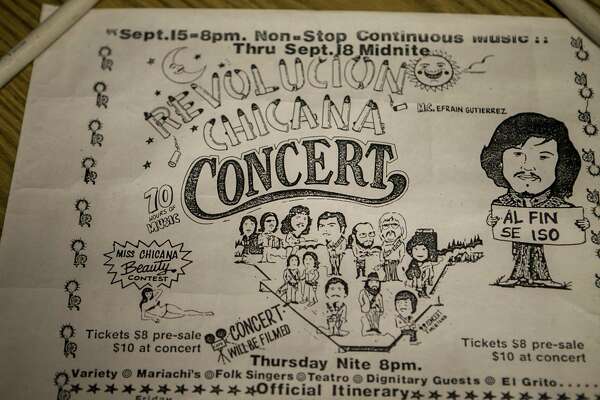 "Sept.15-8pm. Non-Stop Continuous Music!!
Thru Sept.18 Midnite
REVOLUCION
CHICANA
CONCERT
M.C. EFRAIN GUTIERREZ
70
HOURS OF
MUSIC
AL FIN
SE ISO
MISS CHICANA
Beauty
CONTEST
CONCERT
WILL BE FILMED
Tickets $8 pre-sale
$10 at concert
Tickets $8 pre-sale
$10 at concert
Thursday Nite 8pm.
Variety @ Mariachi's @ Folk Singers @ Teatro @ Dignitary Guests @ El Grito.....
Official Itinerary
Friday